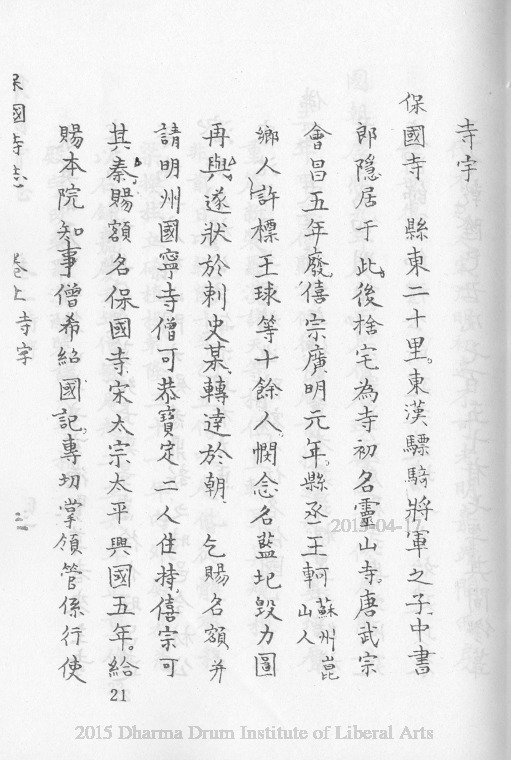 寺宇
保國寺 縣東二十里。東漢驃騎將軍之子、中書
郎隱居于此、後捨宅為寺初名靈山寺。唐武宗
會昌五年廢僖宗廣明元年。縣丞王軻蘇州崑山人
鄉人許標王球等十餘人、憫念名藍圮毀力圖
再興、遂狀於刺史某、轉達於朝、乞賜名額并
請明州國寧寺僧可恭寶定二人住持。僖宗可
其秦、賜額名保國寺、宋太宗太平興國五年。給
賜本院知事僧希紹國記。專切掌領管係行使
保國寺志 卷上 寺宇 三
21
2015-04-17
2015 Dharma Drum Institute of Liberal Arts